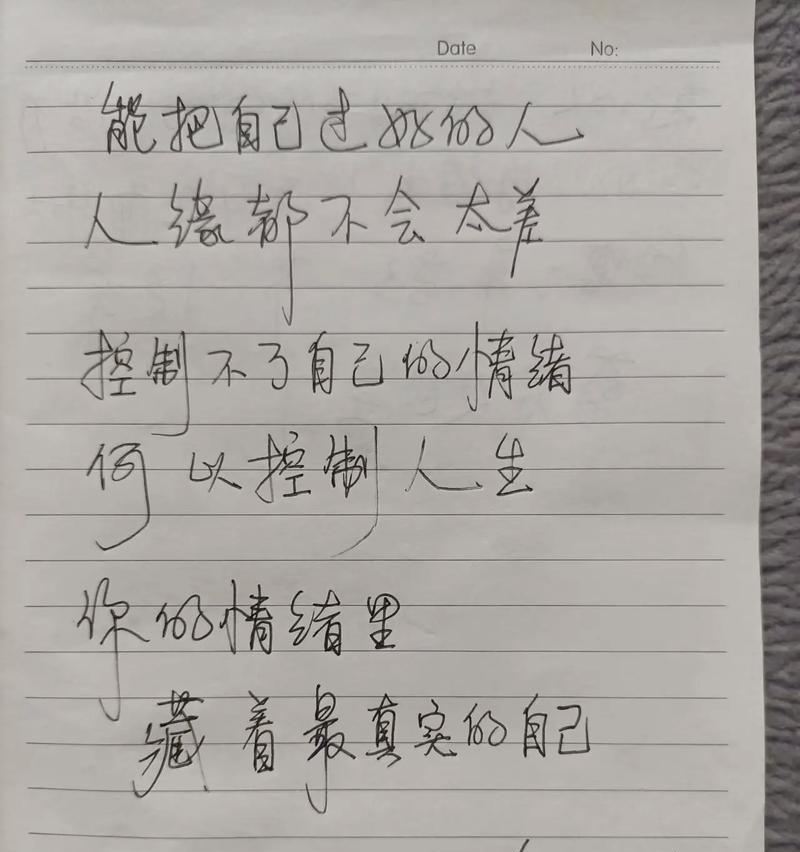 Date No:
能把自己过好的人
人缘都不会太差
控制不了自己的情绪
何以控制人生
你的情绪里
藏着最真实的自己